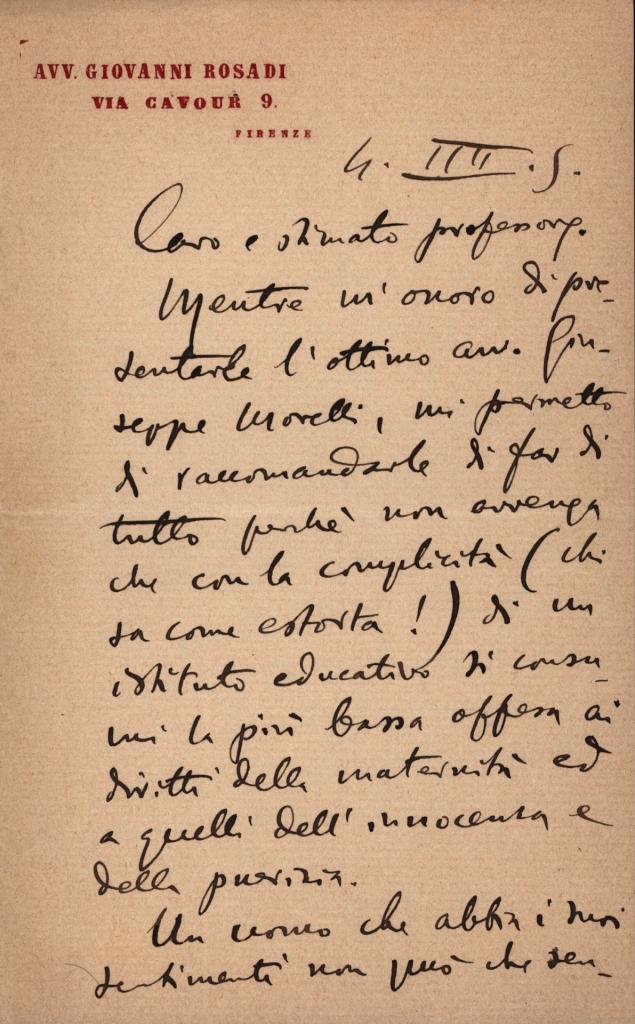 AVV. GIOVANNI ROSADI
VIA CAVOUR 9.
FIRENZE
4. III. 5.
Caro e stimato professore.
Mentre m'onoro di pre-
sentarle l'ottimo avv. Giu-
seppe Morelli, mi permetto
di raccomandarle di far di
tutto perchè non avvenga
che con la complicità (chi
sa come estorta!) di un
istituto educativo si consu-
mi la più bassa offesa ai
diritti della maternità ed
a quelli dell'innocenza e
della puerizia.
Un uomo che abbia i suoi
sentimenti non può che sen-